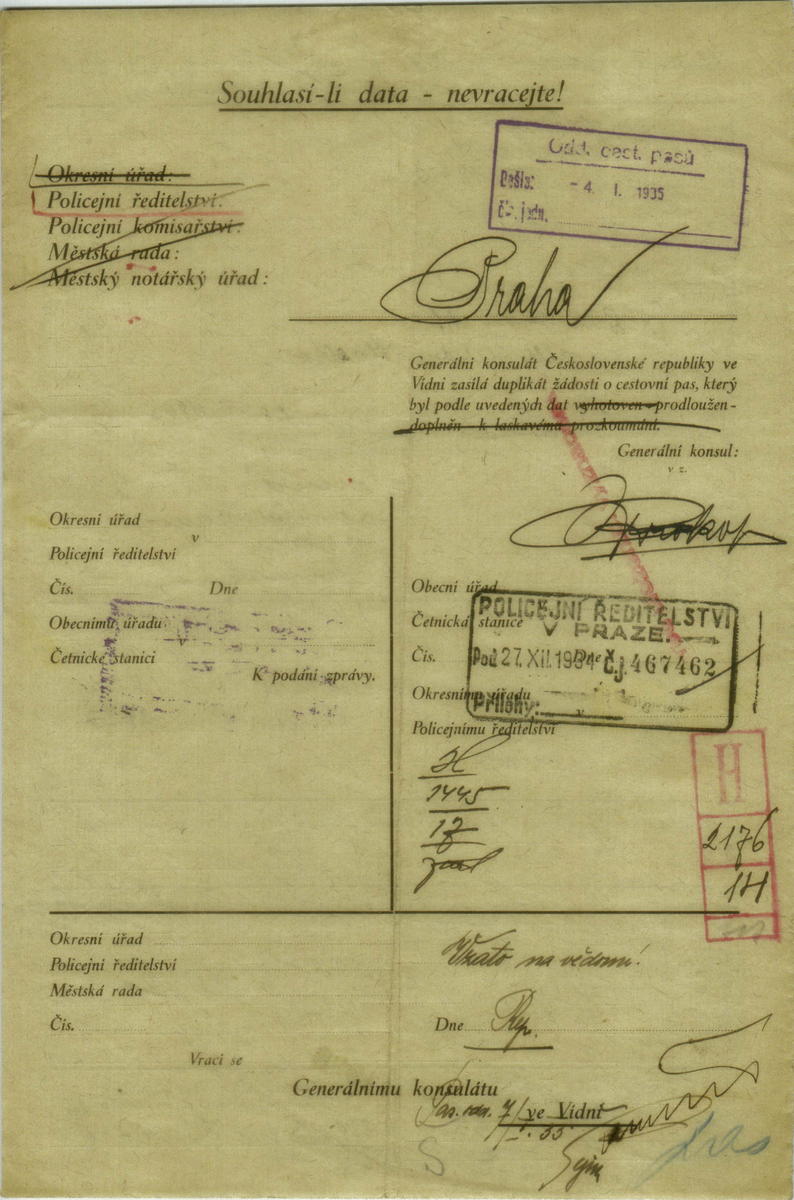 Souhlasí-li data - nevracejte!
Odd. cest. pasů
Došlo: - 4. I. 1935
Čís. jedn.
Okresní úřad:
Policejní ředitelství:
Policejní komisařství:
Městská rada:
Městský notářský úřad:
Praha
Generální konsulát Československé republiky ve
Vídni zasílá duplikát žádosti o cestovní pas, který
byl podle uvedených dat vyhotoven - prodloužen -
doplněn - k laskavému prozkoumání.
Generální konsul:
v z.
Okresní úřad
v
Policejní ředitelství
Čís. Dne
Obecnímu úřadu
v
Četnické stanici
K podání zprávy.
Obecní úřad
Četnická stanice
Čís. Dne
Okresnímu úřadu
v
Policejnímu ředitelství
POLICEJNÍ ŘEDITELSTVÍ
V PRAZE.
Pod 27. XII. 1934 Č.j. 467462
Přílohy:
H
1445
H
2176
14
Okresní úřad
Policejní ředitelství
Městská rada
Čís.
Vzato na vědomí!
Dne Rep.
Vrací se
Generálnímu konsulátu
ve Vídni
7/I. 35